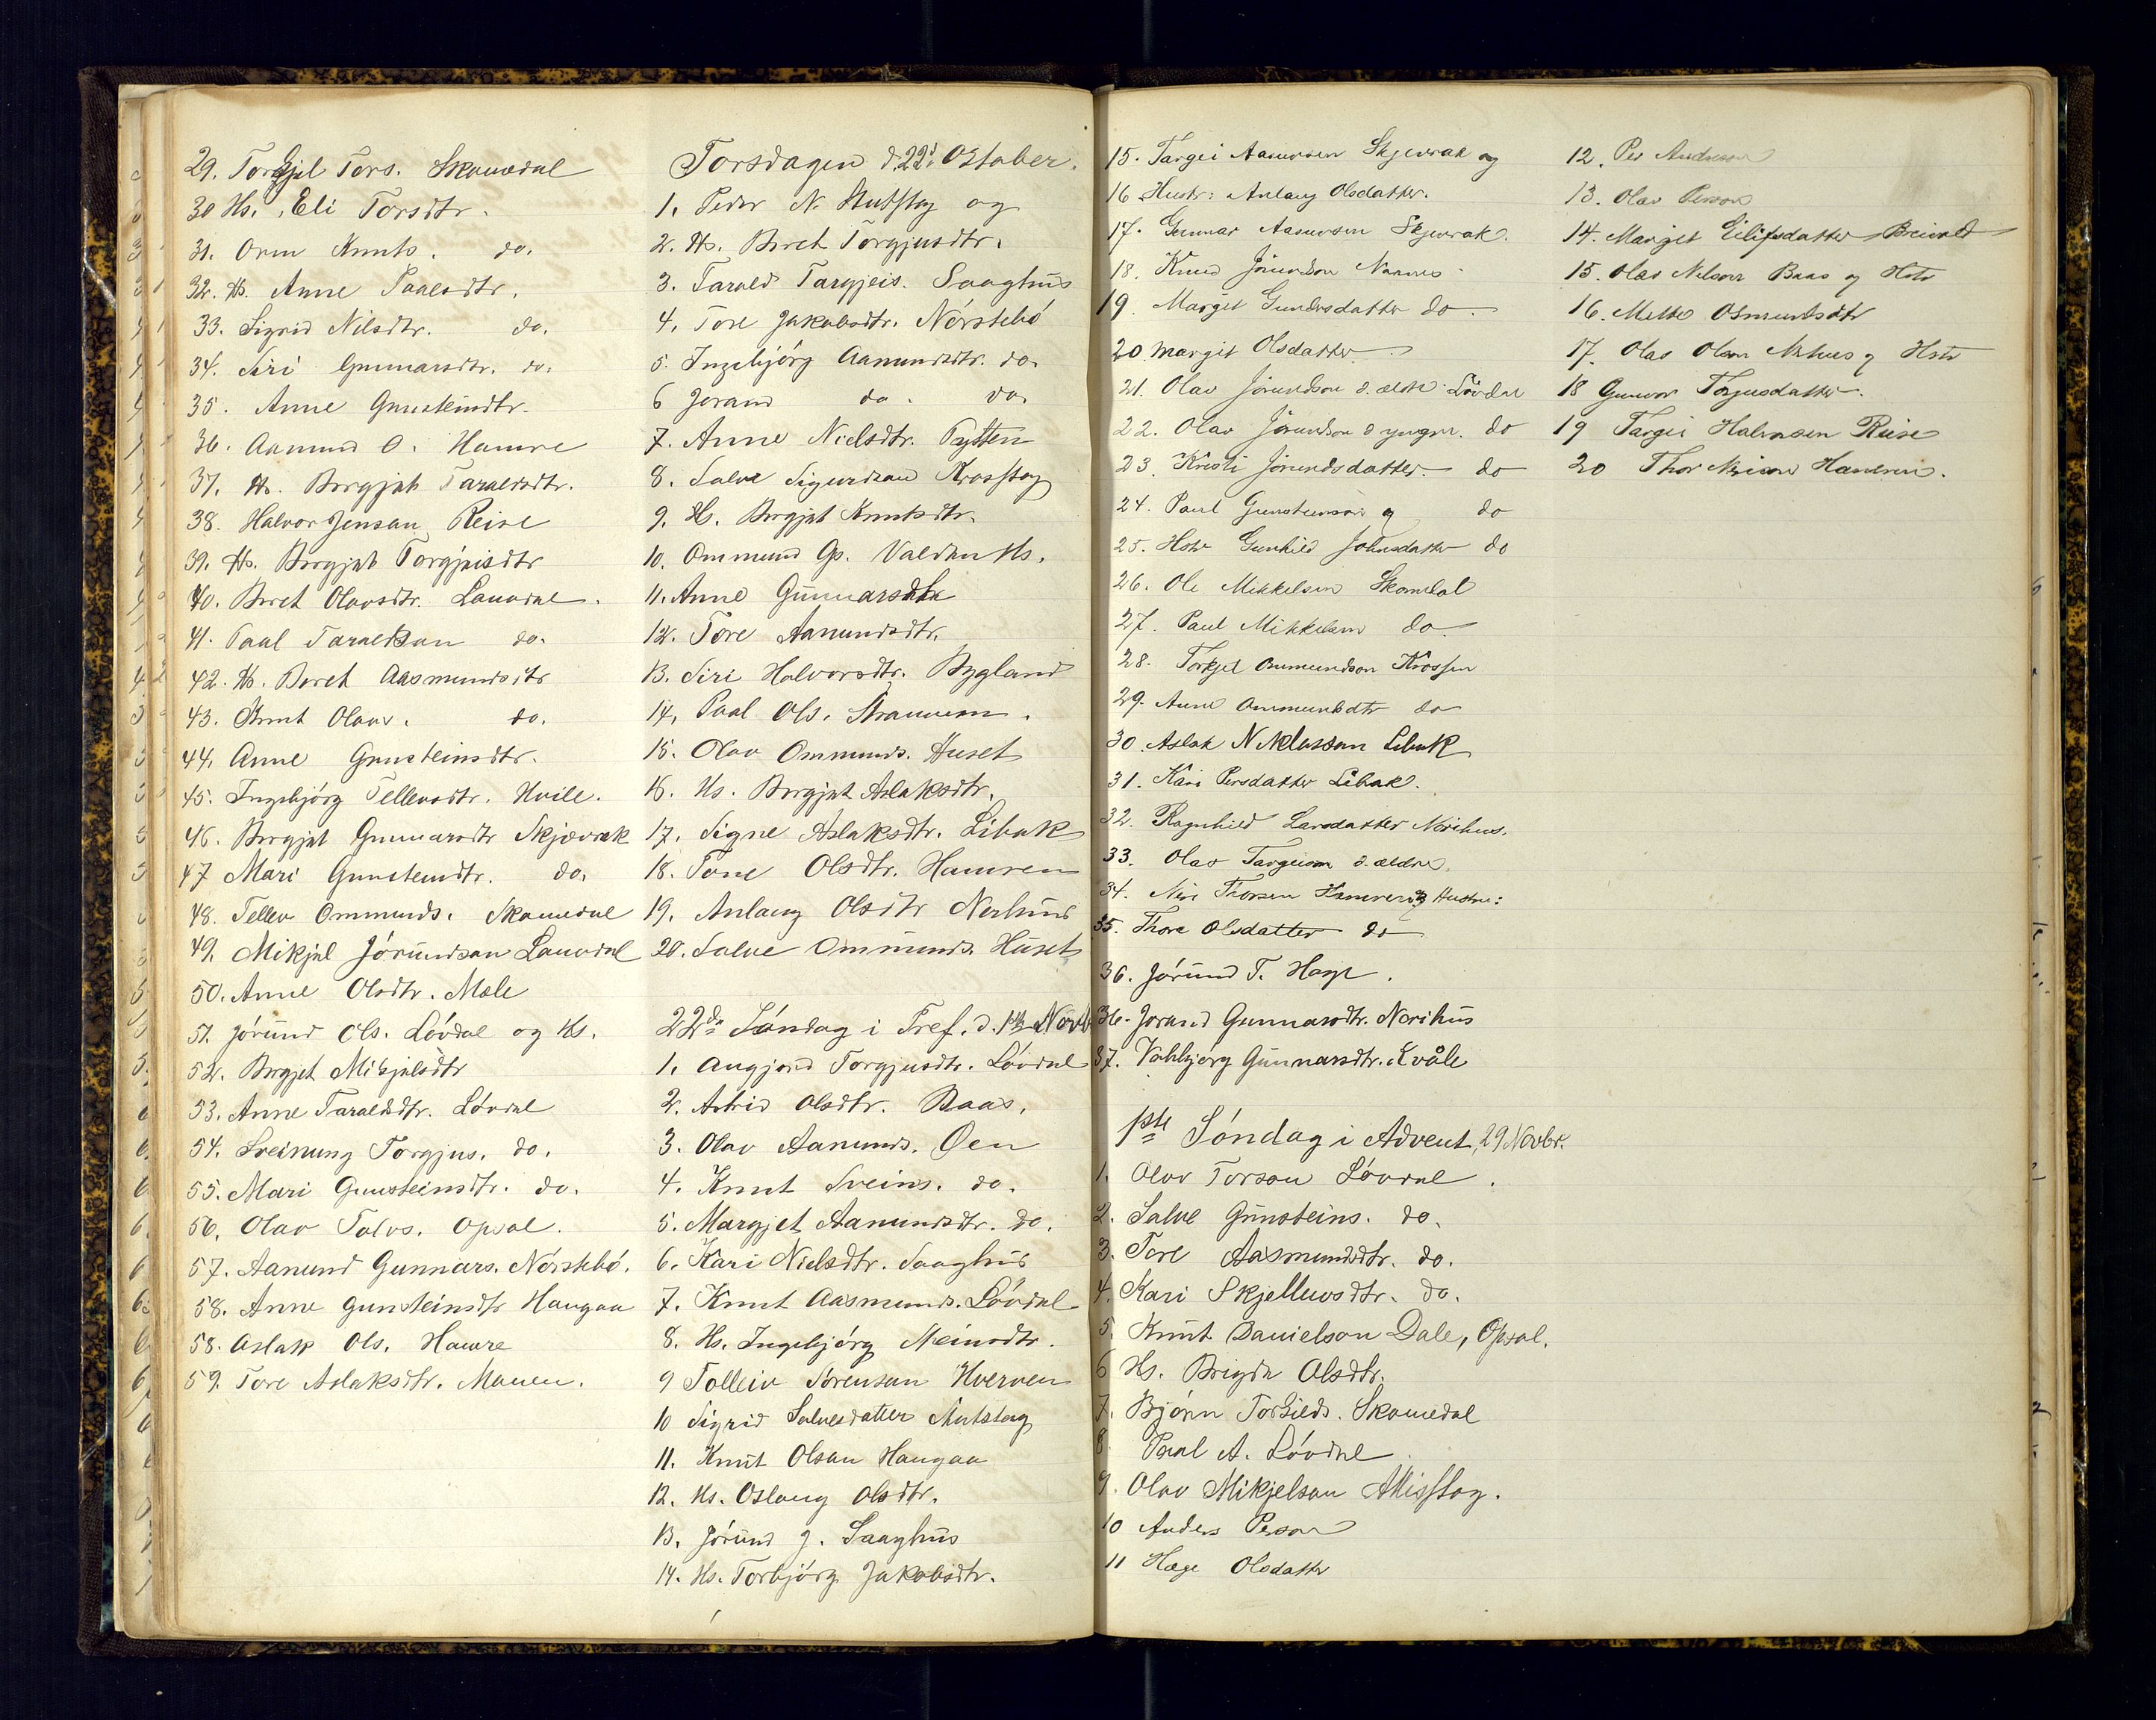 29. Torkjel Tors. Skomedal
30 Hs. Eli Torsdtr.
31. Orm Knuts. do.
32. Hs. Anne Paalsdtr.
33. Sigrid Nilsdtr. do.
34. Siri Gunnarsdtr. do.
35. Anne Gunsteindtr.
36. Aamund O. Hamre
37. Hs. Borgjet Taraldsdtr.
38. Halvor Jensan Reise
39. Hs. Borgjet Torgjeisdtr
40. Beret Olavsdtr. Lauvdal.
41. Paal Taraldsan do.
42. Hs. Beret Aasmundsdtr
43. Knut Olavs. do.
44. Anne Gunsteinsdtr.
45. Ingebjörg Tellevsdtr. Hvile.
46. Borgjet Gunnarsdtr Skjævrak
47 Mari Gunsteindtr. do.
48. Tellev Ommunds. Skomedal
49. Mikjel Jörundsan Lauvdal
50. Anne Olsdtr. Mole
51. Jörund Ols. Lövdal og Hs.
52. Borgjet Mikjalsdtr
53. Anne Taraldsdtr. Lövdal
54. Sveinung Torgjus. do.
55. Mari Gunsteinsdtr. do.
56. Olav Talvs. Opsal.
57. Aanund Gunnars. Nörstebö.
58. Anne Gunsteinsdtr Haugaa
58. Aslak Ols. Hamre
59. Tore Aslaksdtr. Mouen.
Torsdagen d. 22d Oktober.
1. Peder N. og
2. Hs. Beret Torgjusdtr.
3. Tarald Targjeis. Saaghus
4. Tore Jakobsdtr. Nörstebö
5. Ingebjörg Aanundsdtr. do.
6 Jorand do. do.
7. Anne Nielsdtr. Tytten
8. Salve Sigurdsan Krosstøy
9. Hs. Borgjet Knutsdtr.
10. Ommund Gs. Valden Hs.
11. Anne Gunnarsdtr
12. Tore Aanundsdtr.
13. Siri Halvorsdtr. Bygland
14. Paal Ols.
15. Olav Ommunds. Huset
16. Hs. Borgjet Aslaksdtr.
17. Signe Aslaksdtr. Libak
18. Tone Olsdtr. Hamren
19. Anlaug Olsdtr Nerhus
20. Salve Ommunds. Huset
22de Söndag i Tref. d. 1ste Novb
1. Angjerd Torgjusdtr. Lövdal
2. Astrid Olsdtr. Baas.
3. Olav Aanunds. Øen
4. Knut Sveins. do.
5. Margjet Aanundsdtr. do.
6. Kari Nielsdtr. Saaghus
7. Knut Aasmunds. Lövdal
8. Hs. Ingebjörg Steinsdtr.
9 Tolleiv Sörensan Hverven
10 Sigrid Salvesdatter
11. Knut Olsan Haugaa
12. Hs. Oslaug Olsdtr.
13. Jörund J. Saaghus
14. Hs. Torbjörg Jakobsdtr.
15. Targei Aanunsen Skjevrak og
16 Hustr: Anlaug Olsdatter.
17. Gunnar Aanunsen Skjevrak.
18. Knud Jörundson
19. Margit Gundersdatter do.
20. Margit Olsdatter
21. Olav Jörundson d. ældre Lövdal
22. Olav Jörundson d yngre. do
23. Kristi Jörundsdatter do
24. Paul Gunsteinson og do
25. Hstr Gunhild Johnsdatter do
26. Ole Mikkelsen Skomdal
27. Paul Mikkelsen do.
28. Torkjel Ommundson Krossen
29. Anne Ommundsdtr do
30. Aslak Niklassan Libak
31. Kari Persdatter Libak.
32. Ragnhild Larsdatter Nerihus.
33. Olav Targeison d. ældre.
34. Thorsen Hamren og Hustru:
35. Thora Olsdatter do
36. Jörund T. Hage.
36. Jorand Gunnarsdtr. Nerihus
37. Valbjörg Gunnarsdtr. Kvåle
1ste Söndag i Advent, 29 Novbr.
1. Olav Torson Lövdal.
2. Salve Gunsteins. do.
3. Tore Aasmundsdtr. do.
4. Kari Skjellevsdtr. do.
5. Knut Danielson Dale, Opsal.
6 Hs. Brigta Olsdtr.
7. Björn Torkilds. Skomedal
8 Paal A. Lövdal
9. Olav Mikjelsan
10 Anders Person
11 Hæge Olsdatter
12. Per Anderson
13. Olav Person
14. Margit Eilifsdatter Breivold
15. Olav Nilsson Baas og Hstr
16. Mette Osmundsdtr
17. Olav Olsen og Hstr
18 Gunvor Torjusdatter.
19 Targei Halvorsen Reise
20 Thor Hamren.